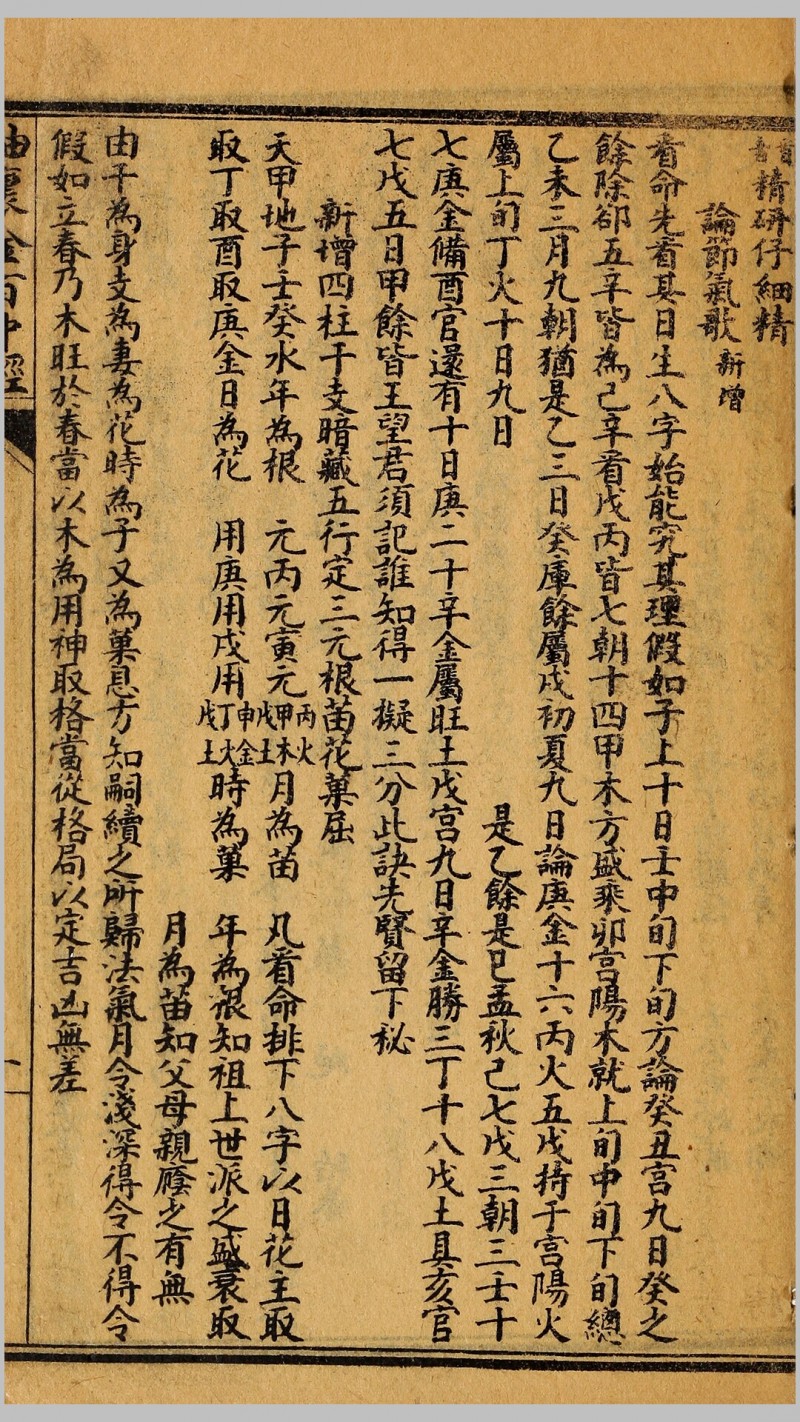 精研仔細精
論節氣歌新增
看命先看其日生八字始能究其理假如子上十日壬中旬下旬方論癸丑宮九日癸之
餘除卻五辛皆為己辛看戊丙皆七朝十四甲木方盛乘卯宮陽木就上旬中旬下旬纏
乙未三月九朝猶是乙三日癸庫餘屬戊初夏九日論庚金十六丙火五戊掎于宮陽火
屬上旬丁火十日九日 是乙餘是巳孟秋己七戊三朝三壬十
七庚金備酉官還有十日庚二十辛金屬旺土戊宮九日辛金勝三丁十八戊土具亥官
七戊五日甲餘皆王望君須記誰知得一擬三分此訣先賢留下秘
新增四柱干支暗藏五行定三元根苗花菓屈
天甲地子壬癸水年為根 元丙元寅元丙火甲木戊土月為苗 凡看命排下八字以日花主取
取丁取酉取庚金日為花 用庚用戌用申金丁火戊土時為菓 年為根知祖上世派之盛衰取
月為苗知父母親廕之有無
由干為身支為妻為花時為子又為菓息方知嗣續之所歸法氣月令淺深得令不得令
假如立春乃木旺於春當以木為用神取格當從格局以定吉凶無差
袖裏金百中經
一